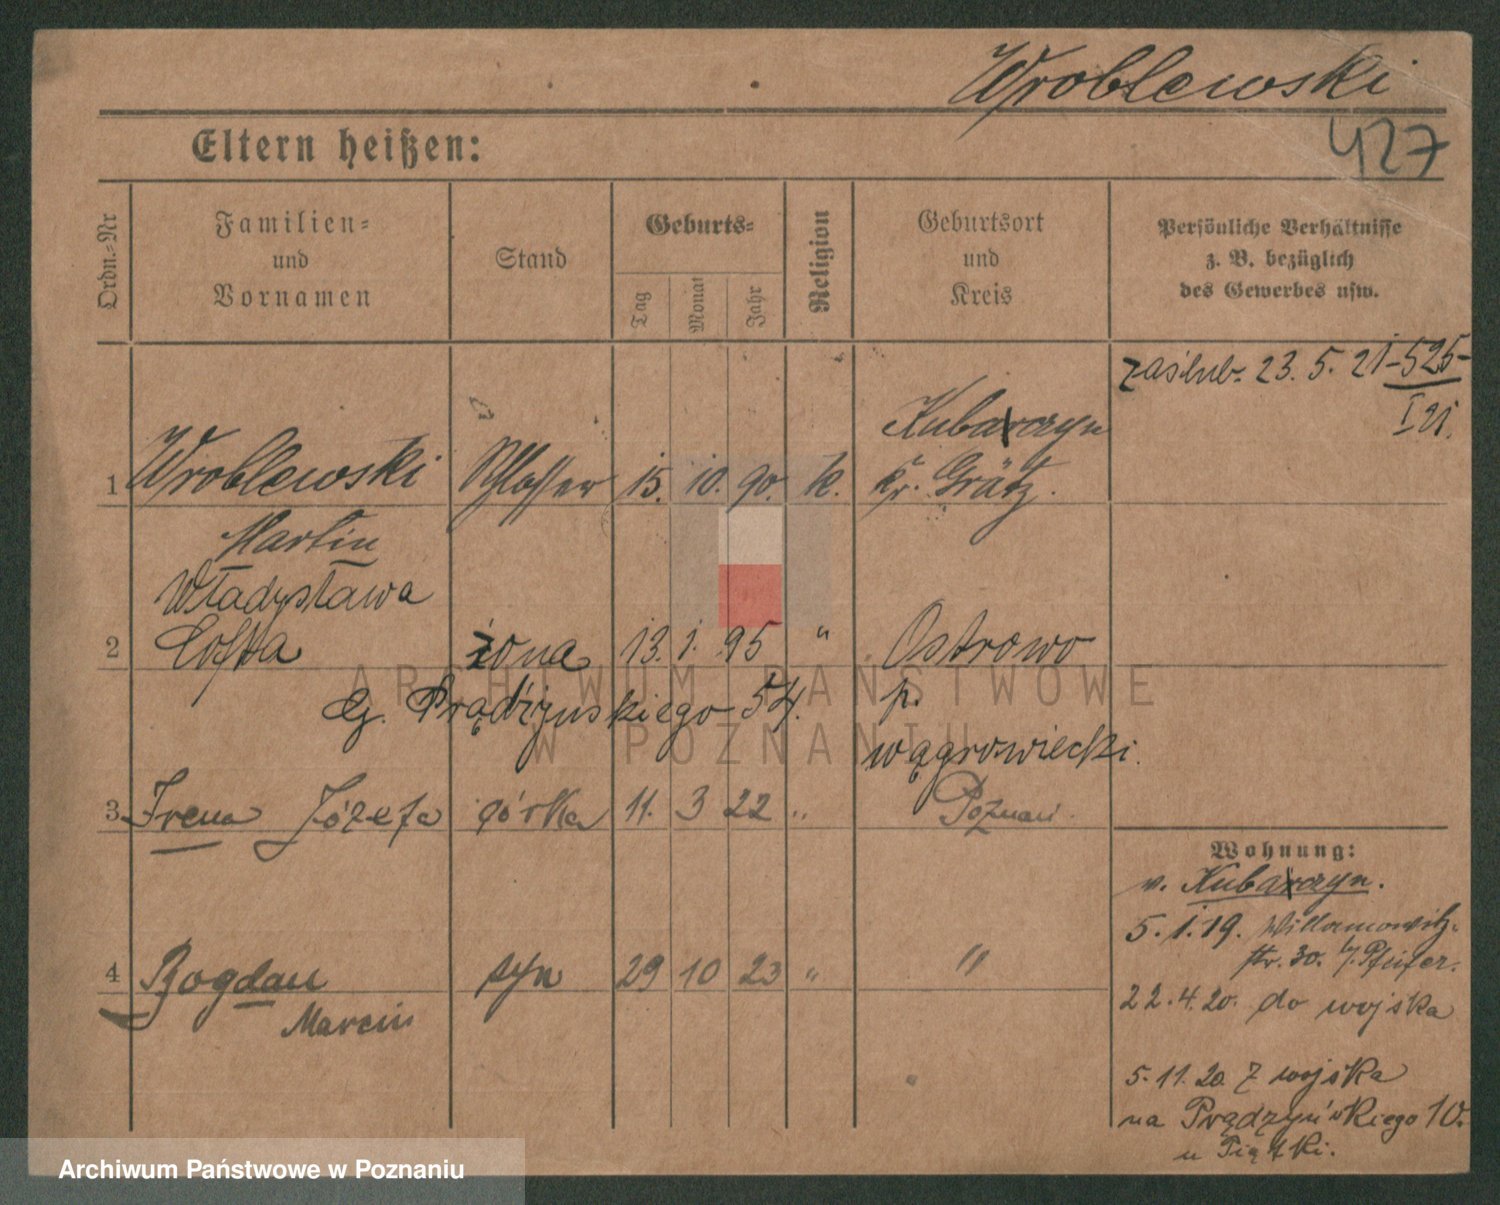 Wroblewski
427
Eltern heißen:
Ordn.-Nr
Familien- und Vornamen
Stand
Geburts-
Tag
Monat
Jahr
Religion
Geburtsort und Kreis
Persönliche Verhältnisse
z. B. bezüglich
des Gewerbes usw.
zaślub. 23. 5. 21 - 525 -
I 21.
Kubaczyn
1 Wroblewski Schlosser 15. 10. 90. k. Kr. Grätz.
Martin
Władysława
2 żona 13. 1. 95 " Ostrowo
Prądzyńskiego 54. p.
wągrowiecki.
3 Irena Józefa córka 11. 3 22 " Poznań
Wohnung:
v. Kubaczyn.
5. 1. 19. Willamowitz-
str. 30. b/. Pfeifer.
4 Bogdan syn 29 10 23 " "
Marcin
22. 4. 20. do wojska
5. 11. 20 z wojska
na Prądzyńskiego 10.
u Piątki.
ARCHIWUM PAŃSTWOWE
W POZNANIU
Archiwum Państwowe w Poznaniu